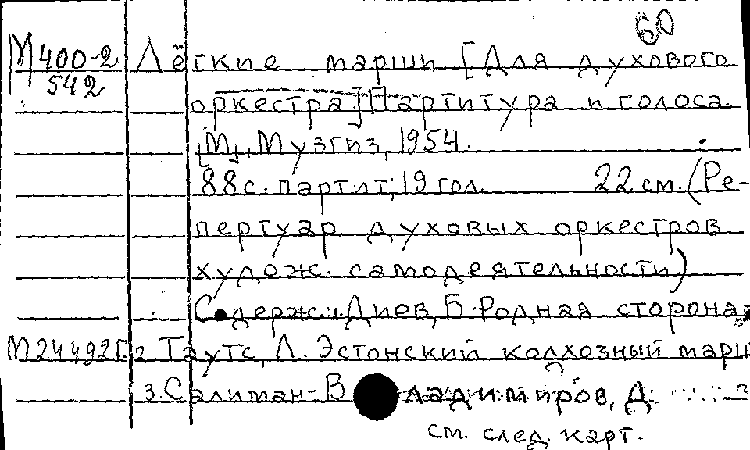 60
М400-2 Лёгкие марши [Для духового
542
оркестра] Партитура и голоса.
[М], Музгиз, 1954.
88с. парт. лт; 19 гол. 22 см. (Ре-
пертуар духовых оркестров
худож. самодеятельности)
Содерж: 1. Диев, Б. Родная сторона;
М24492 2. Таутс, Л. Эстонский колхозный марш
3. Салиман-Владимиров, Д.
см. след. карт.